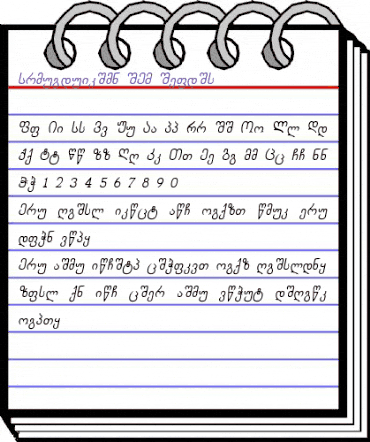 სრმუგდუიკშმნ შემ შეფდშს
ფფ იი სს ვვ უუ აა პპ რრ შშ ოო ლლ დდ
ქქ ტტ წწ ზზ ღღ კკ თთ ეე გგ მმ ცც ჩჩ ნნ
ჭჭ 1 2 3 4 5 6 7 8 9 0
ერუ ღგშსლ იკწცტ აწჩ ოგქზთ წმუკ ერუ
დფჭნ ვწპყ
ერუ აშმუ იწჩშტპ ცშჭფკვთ ოგქზ ღგშსლდნყ
ზფსლ ქნ იწჩ ცშერ აშმუ ვწჭუტ დშღგწკ
ოგპთყ